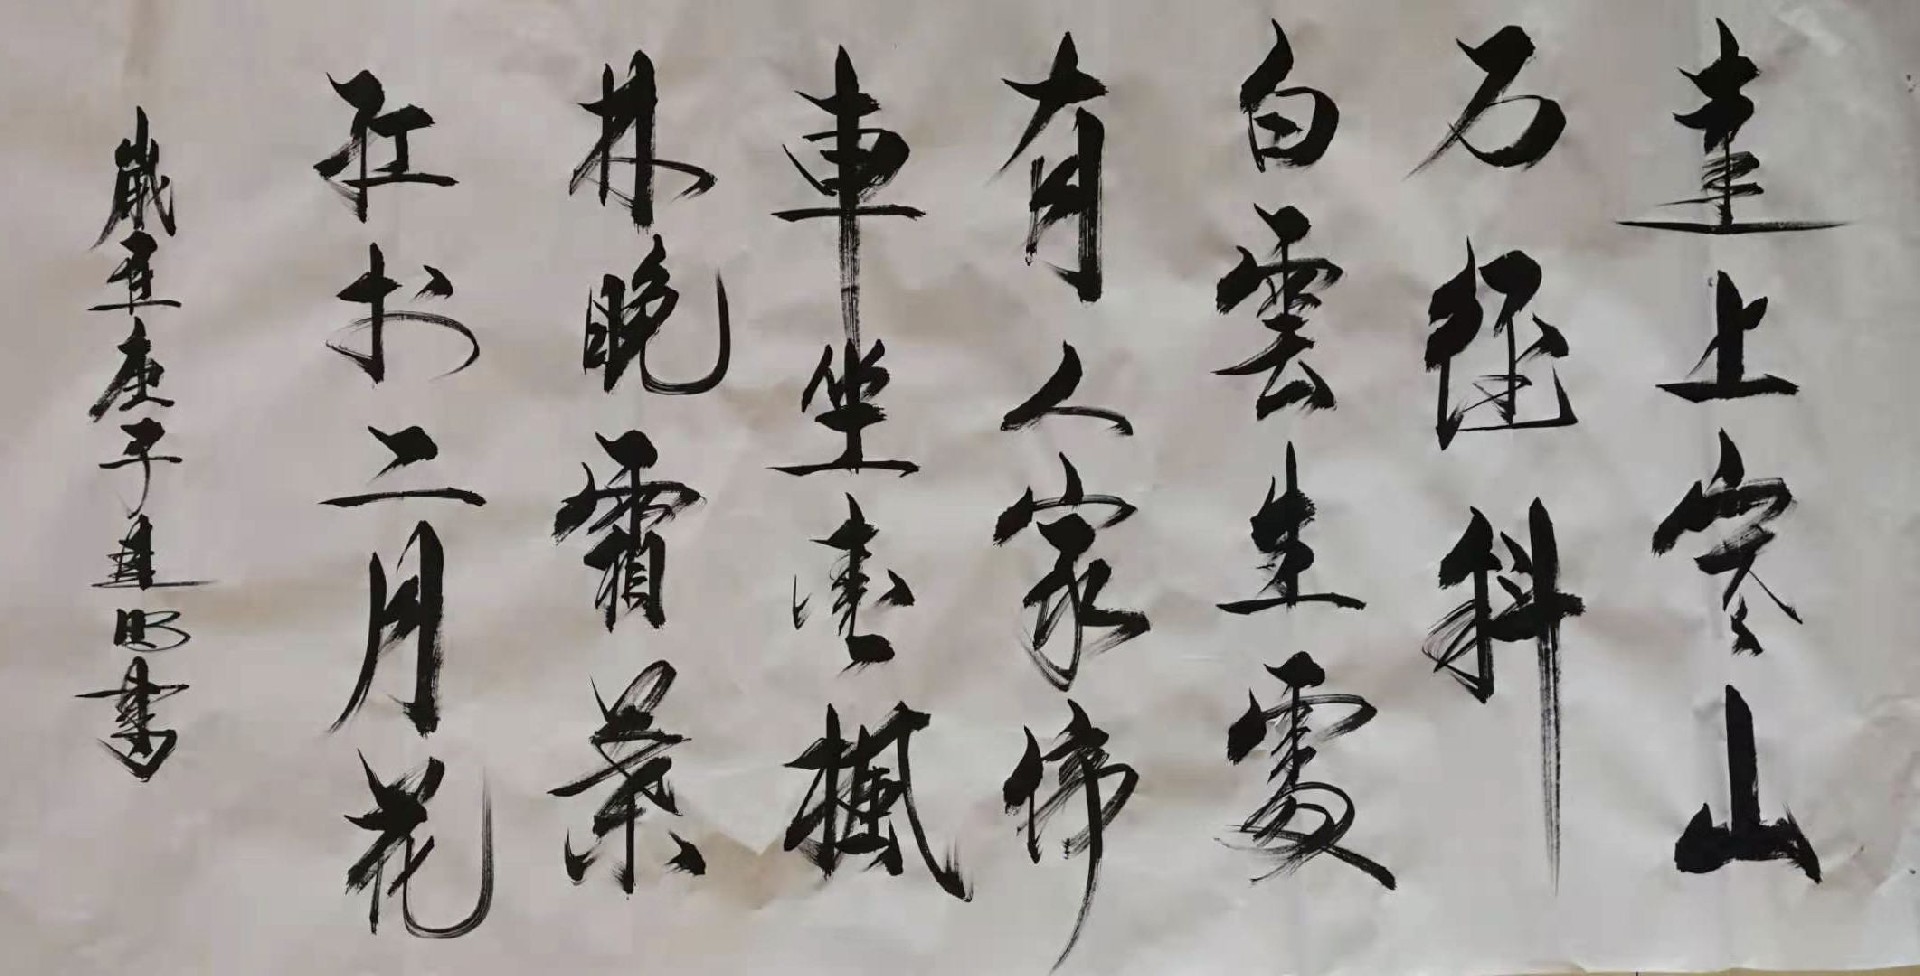 遠上寒山
石徑斜
白雲生處
有人家停
車坐愛楓
林晚霜葉
紅於二月花
歲庚子建明書